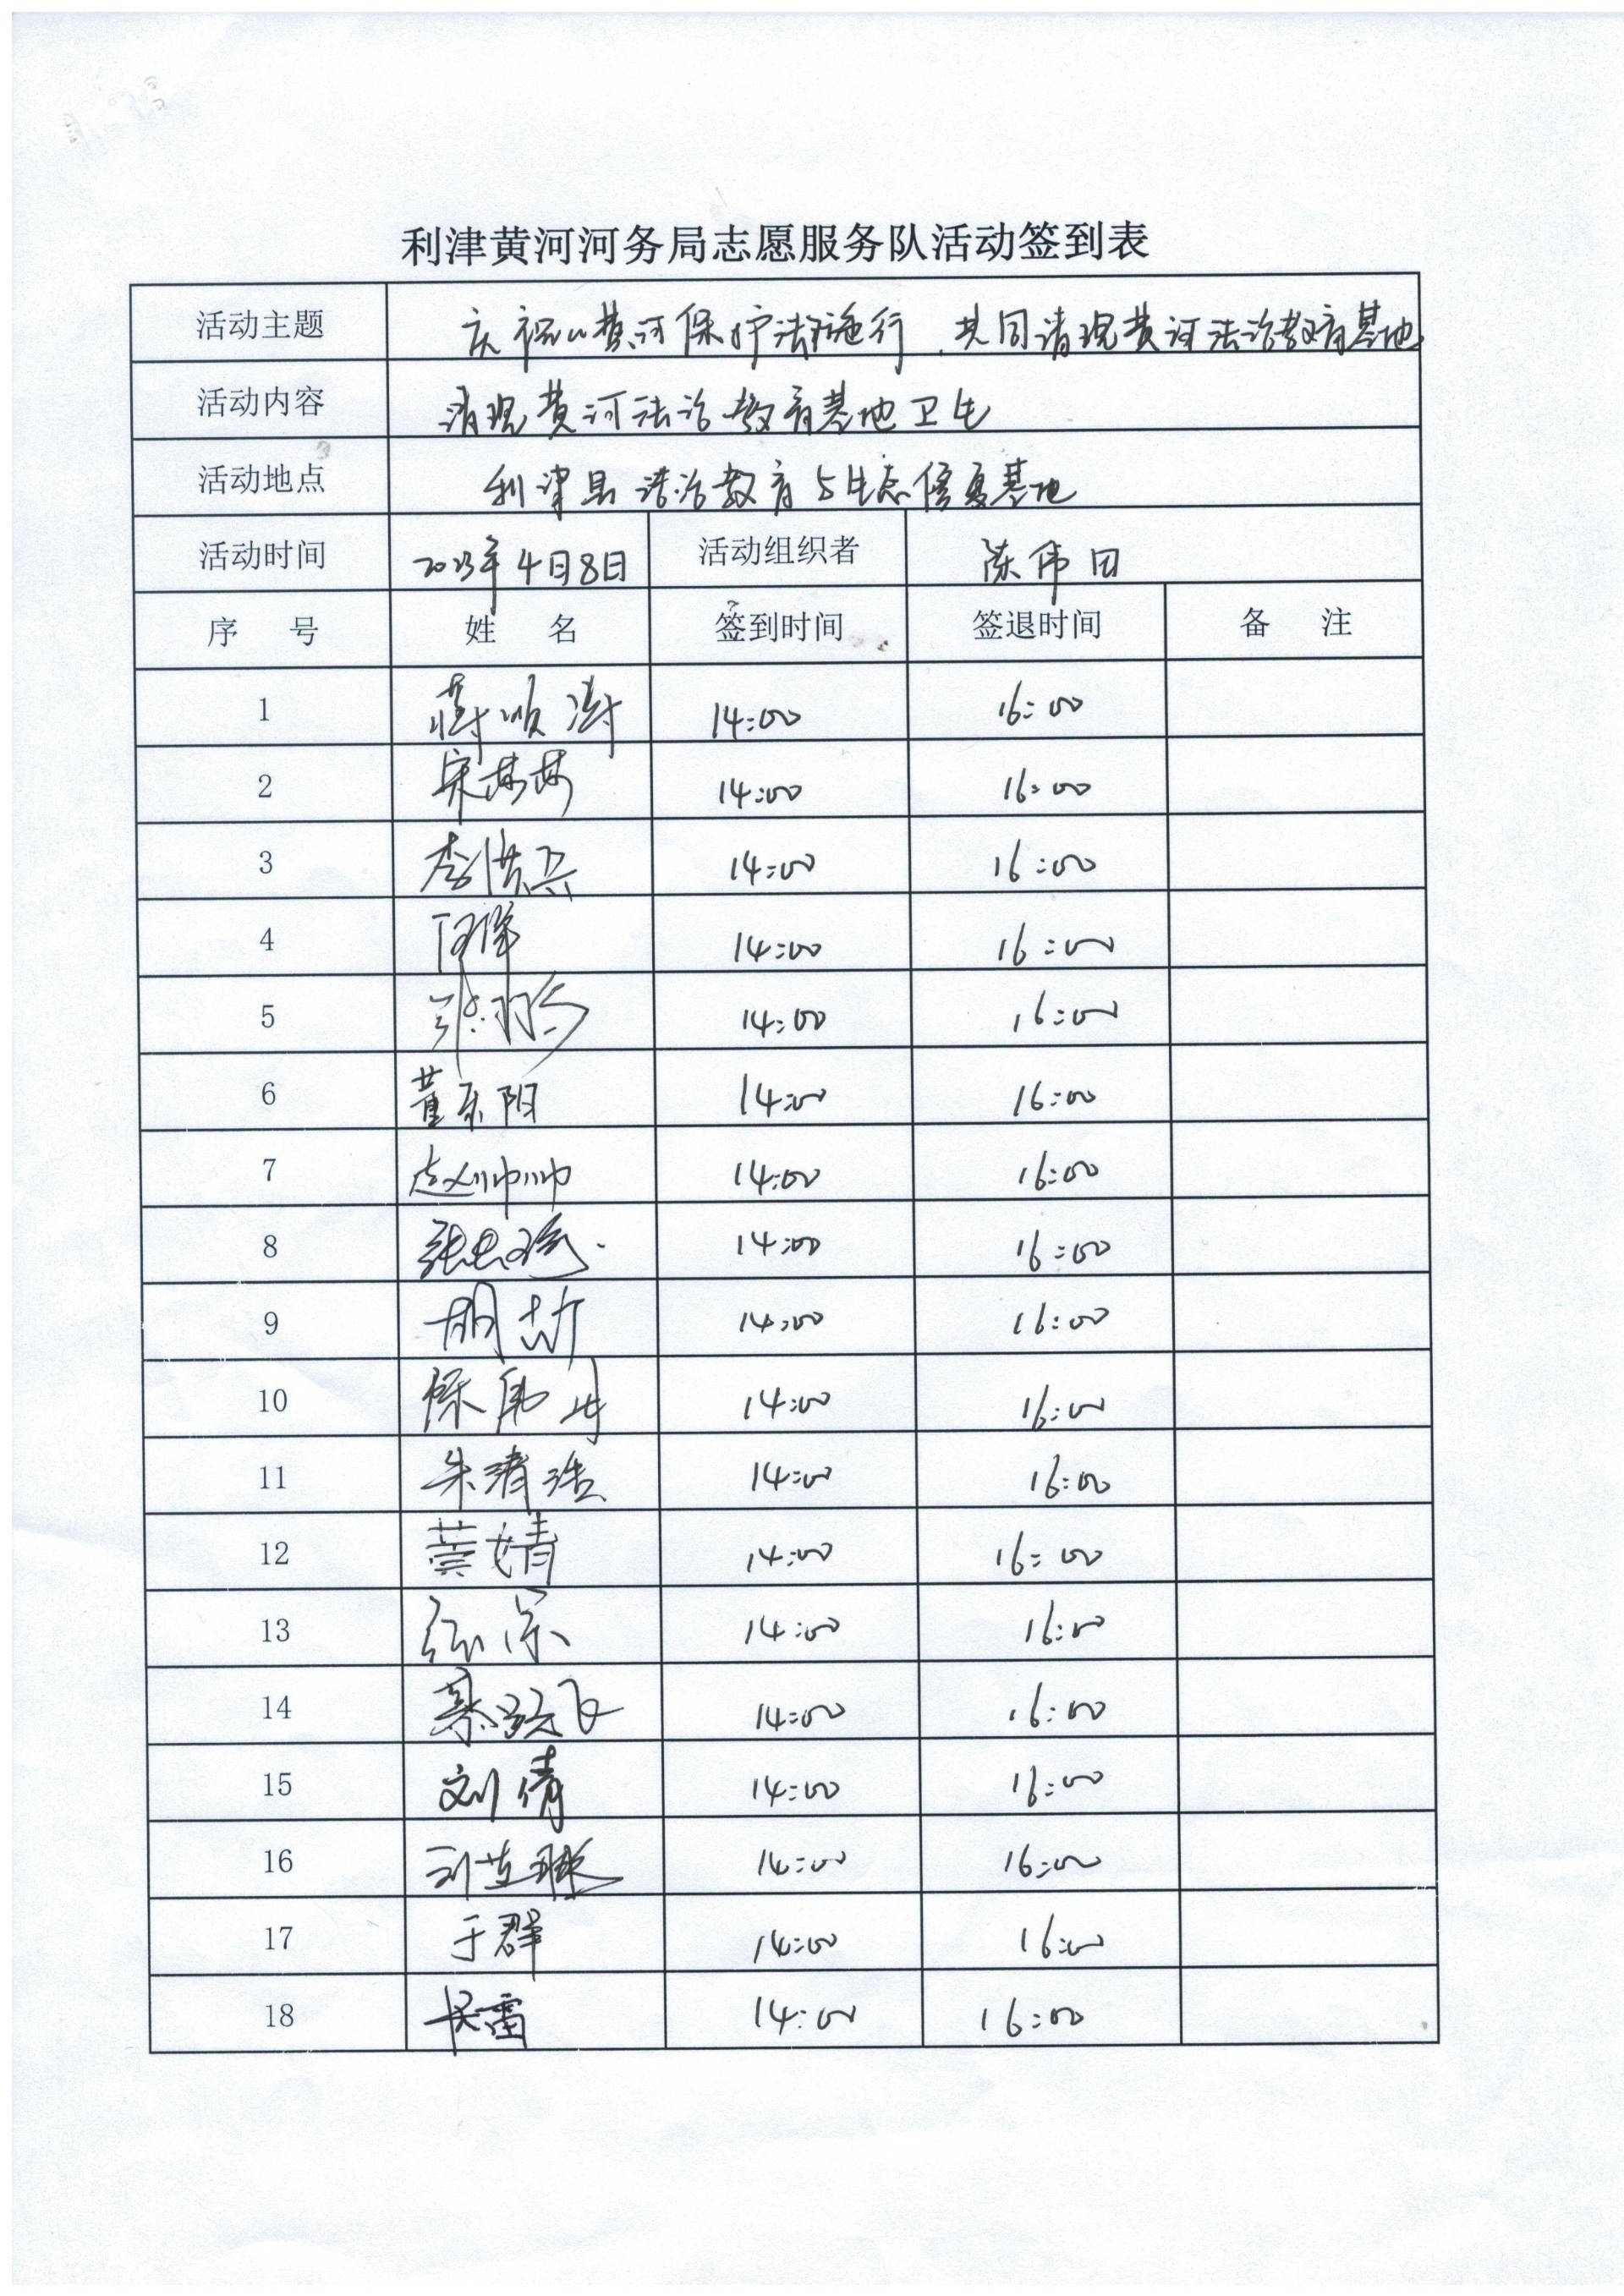 利津黄河河务局志愿服务队活动签到表
活动主题 庆祝《黄河保护法》施行、共同清理黄河法治教育基地
活动内容 清理黄河法治教育基地卫生
活动地点 利津县法治教育与生态修复基地
活动时间 2023年4月8日 活动组织者 陈伟田
序 号 姓 名 签到时间 签退时间 备 注
1 14:00 16:00
2 宋苏苏 14:00 16:00
3 李洪兵 14:00 16:00
4 14:00 16:00
5 14:00 16:00
6 董东阳 14:00 16:00
7 赵帅帅 14:00 16:00
8 14:00 16:00
9 胡喆 14:00 16:00
10 14:00 16:00
11 朱清浩 14:00 16:00
12 黄婧 14:00 16:00
13 14:00 16:00
14 14:00 16:00
15 刘倩 14:00 16:00
16 14:00 16:00
17 于群 14:00 16:00
18 14:00 16:00